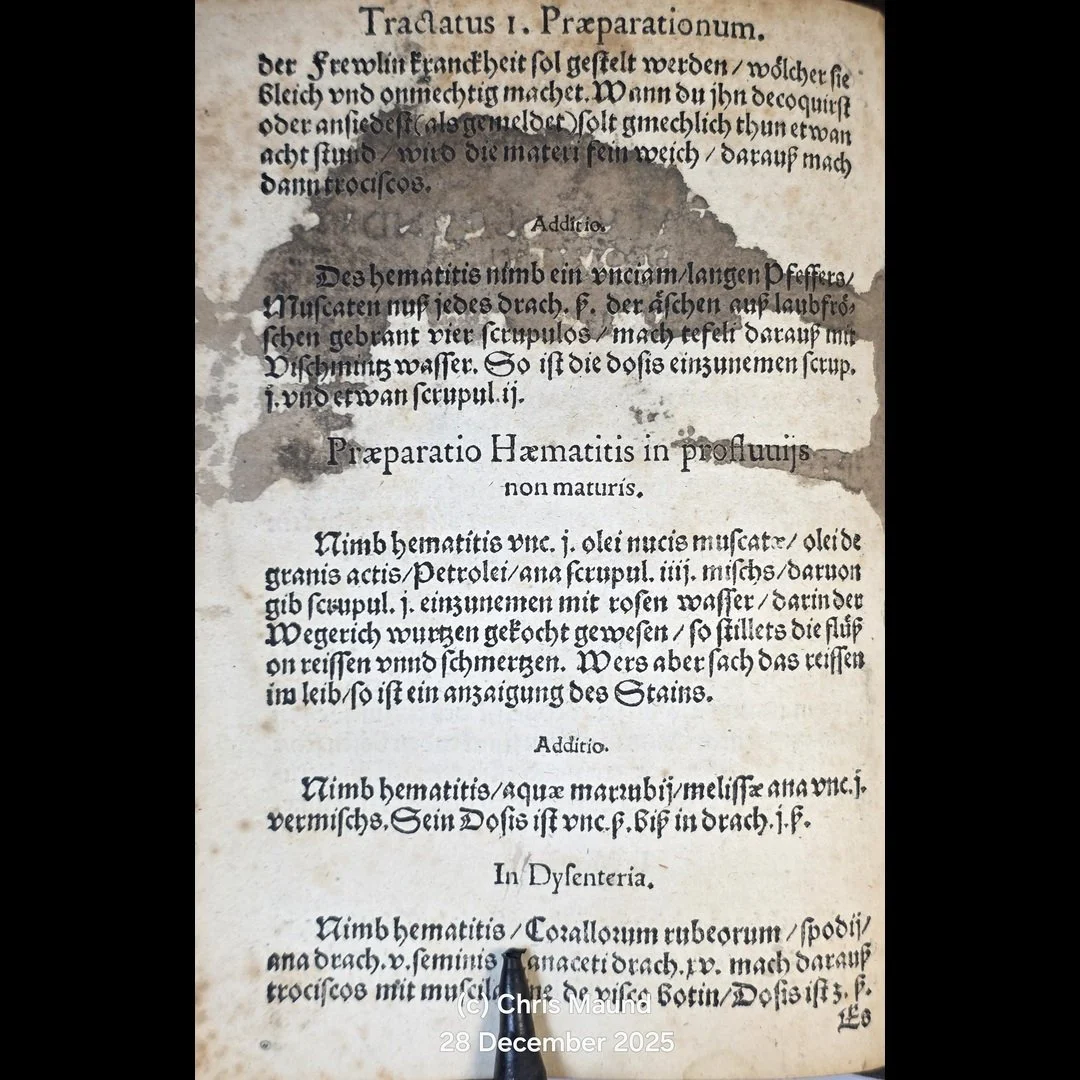 Tractatus 1. Præparationum.
der Frewlin kranckheit sol gestelt werden / wölcher sie
bleich vnd onmechtig machet. Wann du jhn decoquirst
oder ansiedest (als gemeldet) solt gmechlich thun etwan
acht stund / wird die materi fein weich / darauß mach
dann trociscos.
Additio.
Des hematitis nimb ein vnciam / langen Pfeffers /
Muscaten nuß jedes drach. ß. der äschen auß laubfrö-
schen gebrant vier scrupulos / mach tefeli darauß mit
Vischmintz wasser. So ist die dosis einzunemen scrup.
j. vnd etwan scrupul. ij.
Præparatio Hæmatitis in profluuijs
non maturis.
Nimb hematitis vnc. j. olei nucis muscatæ / olei de
granis actis / Petrolei / ana scrupul. iiij. mischs / daruon
gib scrupul. j. einzunemen mit rosen wasser / darin der
Wegerich wurtzen gekocht gewesen / so stillets die flüß
on reissen vnnd schmertzen. Wers aber sach das reissen
im leib / so ist ein anzaigung des Stains.
Additio.
Nimb hematitis / aquæ marrubij / melissæ ana vnc. j.
vermischs. Sein Dosis ist vnc. ß. biß in drach. j. ß.
In Dysenteria.
Nimb hematitis / Corallorum rubeorum / spodij /
ana drach. v. seminis drach. xv. mach darauß
trociscos mit de visco botin / Dosis ist ʒ. ß.
Es
(c) Chris Maund
28 December 2025